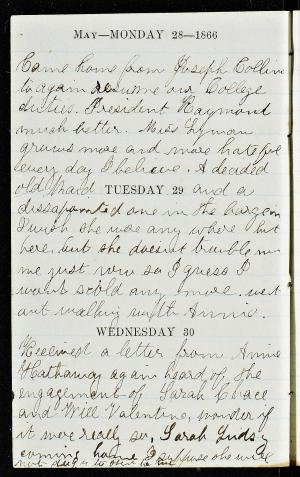 MAY—MONDAY 28—1866
Came home from Joseph Collins
to again resume our College
duties. President Raymond
much better. Miss Lyman
grows more and more hateful
every day I believe. A decided
old Maid TUESDAY 29 and a
dissapointed one in the bargen
I wish she was any where but
here, but she doesint trouble
me just now so I guess I
wont scold any more. went
out walking with Annie.
WEDNESDAY 30
Received a letter from Anna
Hathaway again heard of the
engagement of Sarah Chace
and Will Valentine, wonder if
it were really so. Sarah Judsy
coming home I suppose she will
not